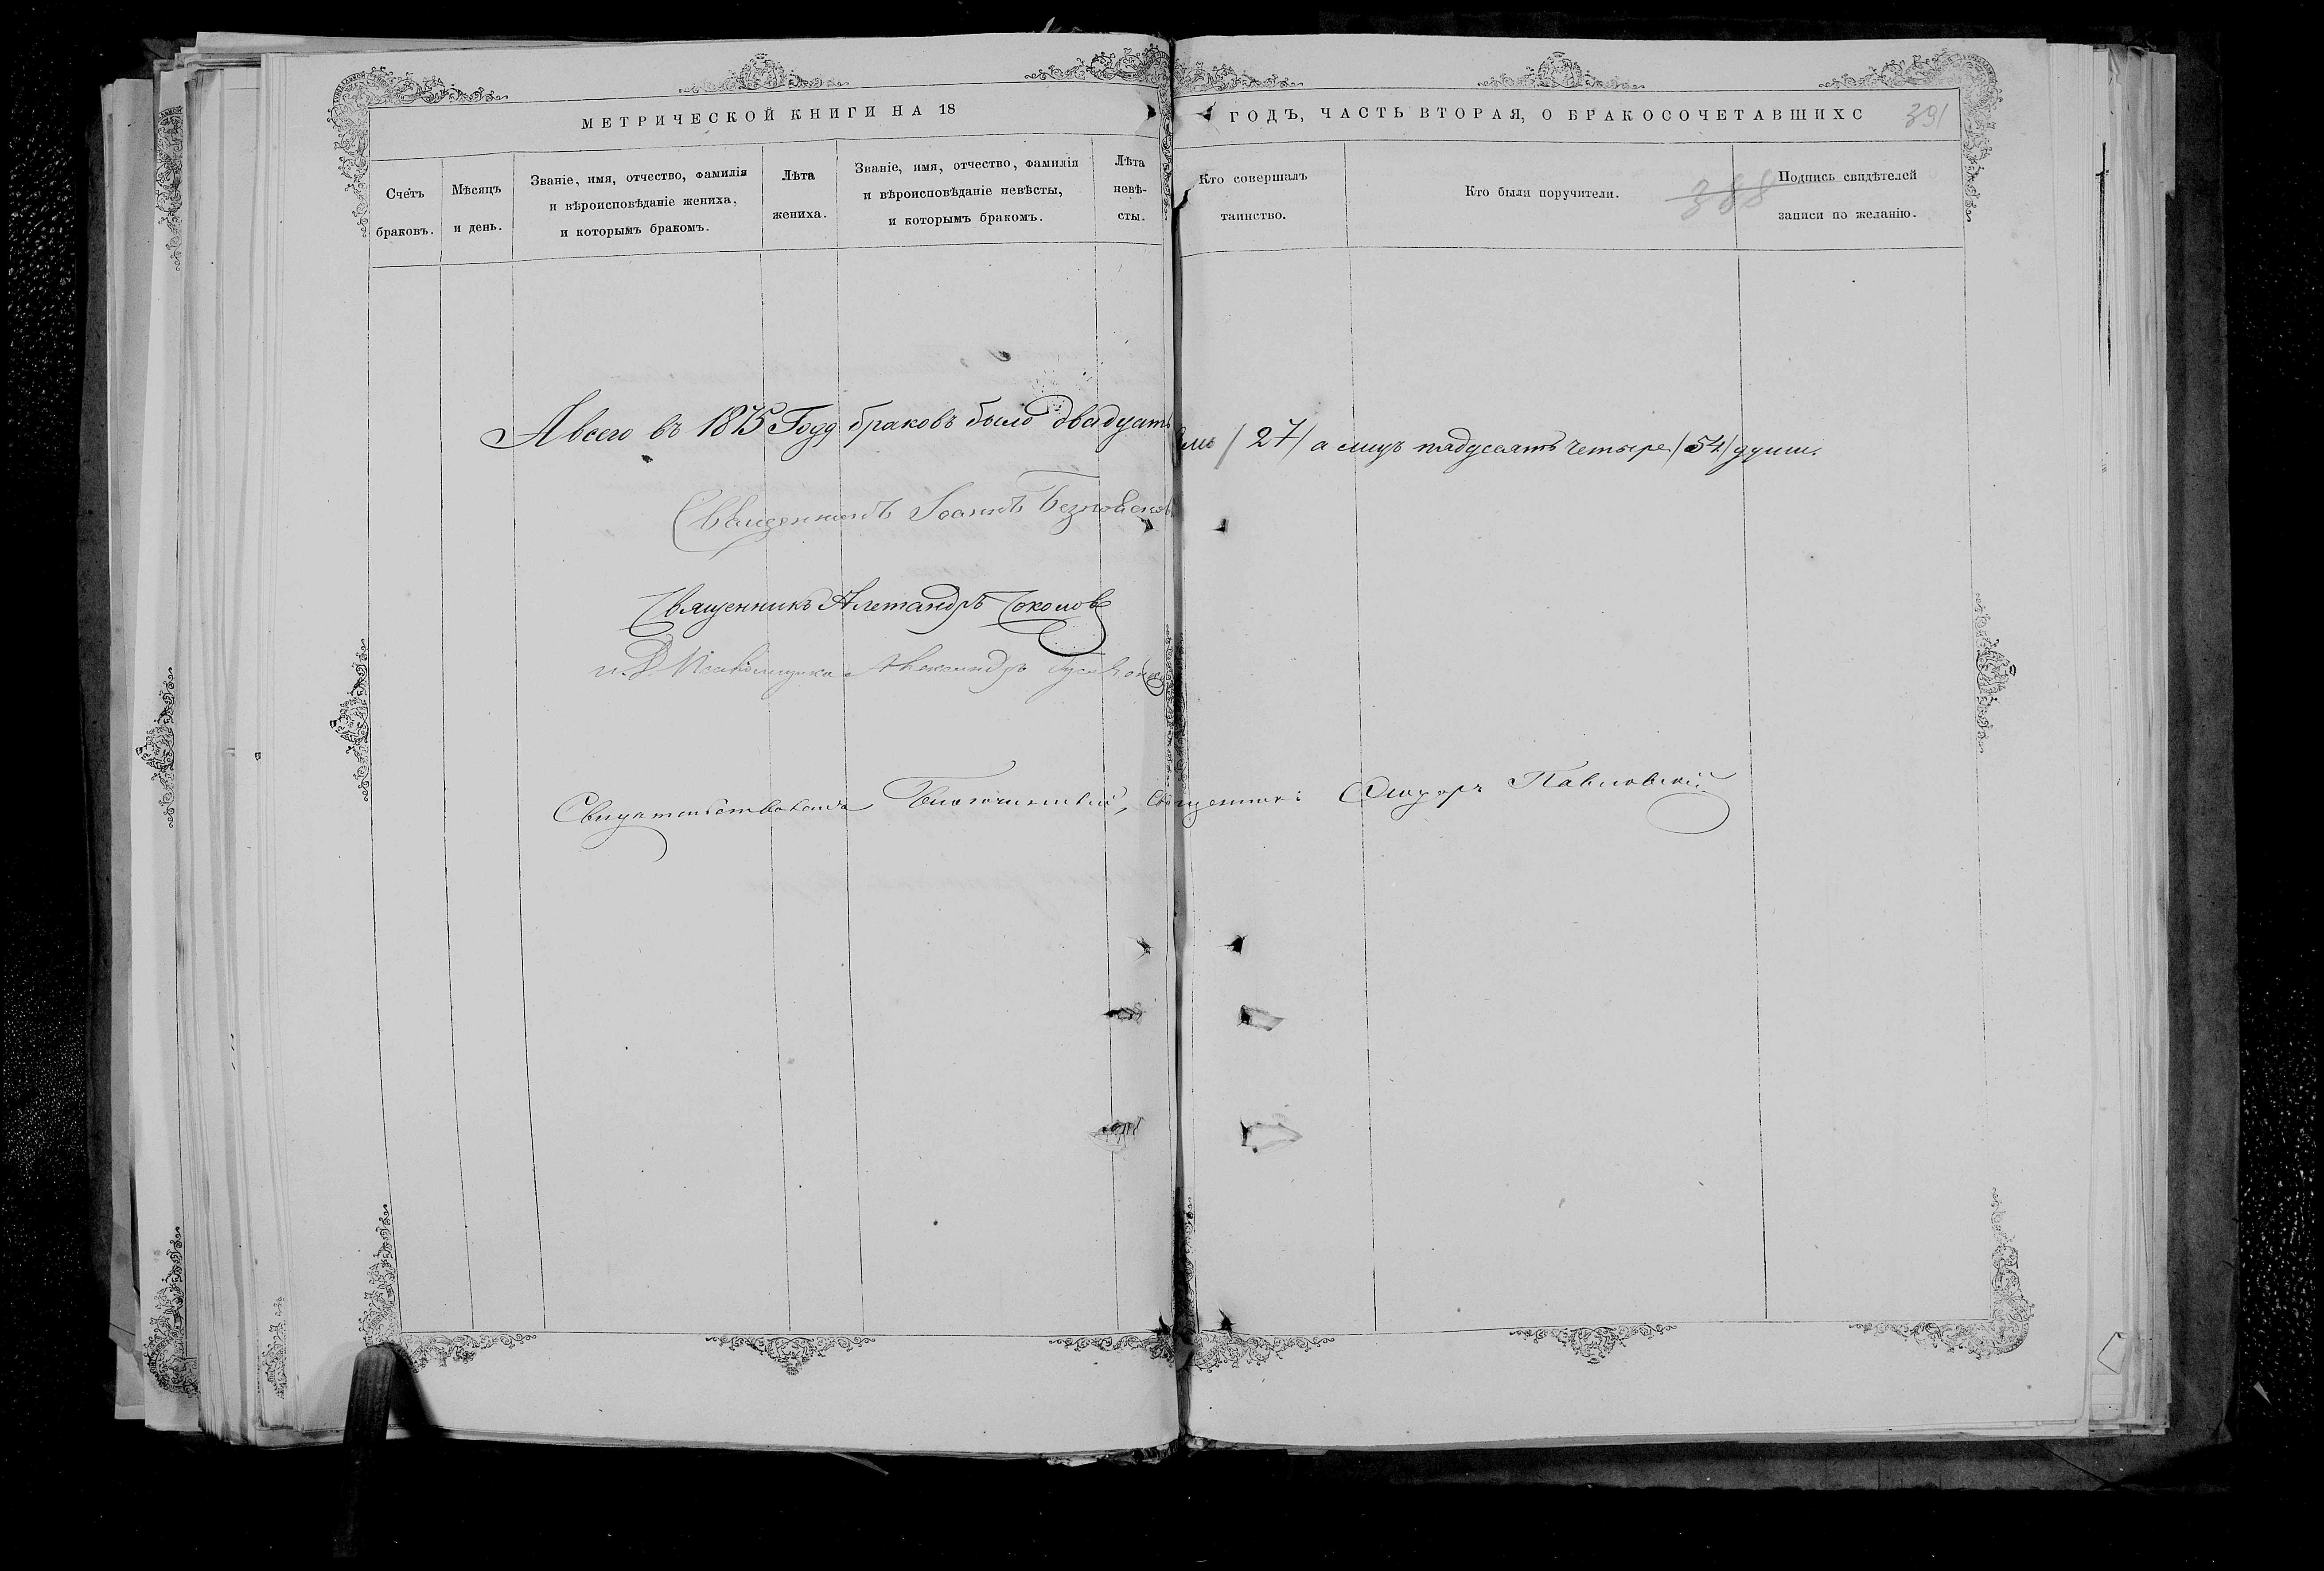 МЕТРИЧЕСКОЙ КНИГИ НА 18
ГОДЪ, ЧАСТЬ ВТОРАЯ, О БРАКОСОЧЕТАВШИХС
391
Счетъ
браковъ.
Мѣсяцъ
и день.
Званіе, имя, отчество, фамилія
и вѣроисповѣданіе жениха,
и которымъ бракомъ.
Лѣта
жениха.
Званіе, имя, отчество, фамилія
и вѣроисповѣданіе невѣсты,
и которымъ бракомъ.
Лѣта
невѣ-
сты.
Кто совершалъ
таинство.
Кто были поручители.
388
Подпись свидѣтелей
записи по желанію.
А всего въ 1875 Году браковъ было двадцать емь (27) а лицъ пядесятъ четыре (54) души.
Священникъ Іоаннъ
Священникъ Александръ Соколовъ
и. д. Псаломщика Александръ
Свидѣтельствовалъ Благочинный, Священникъ Ѳеодоръ Павловскій